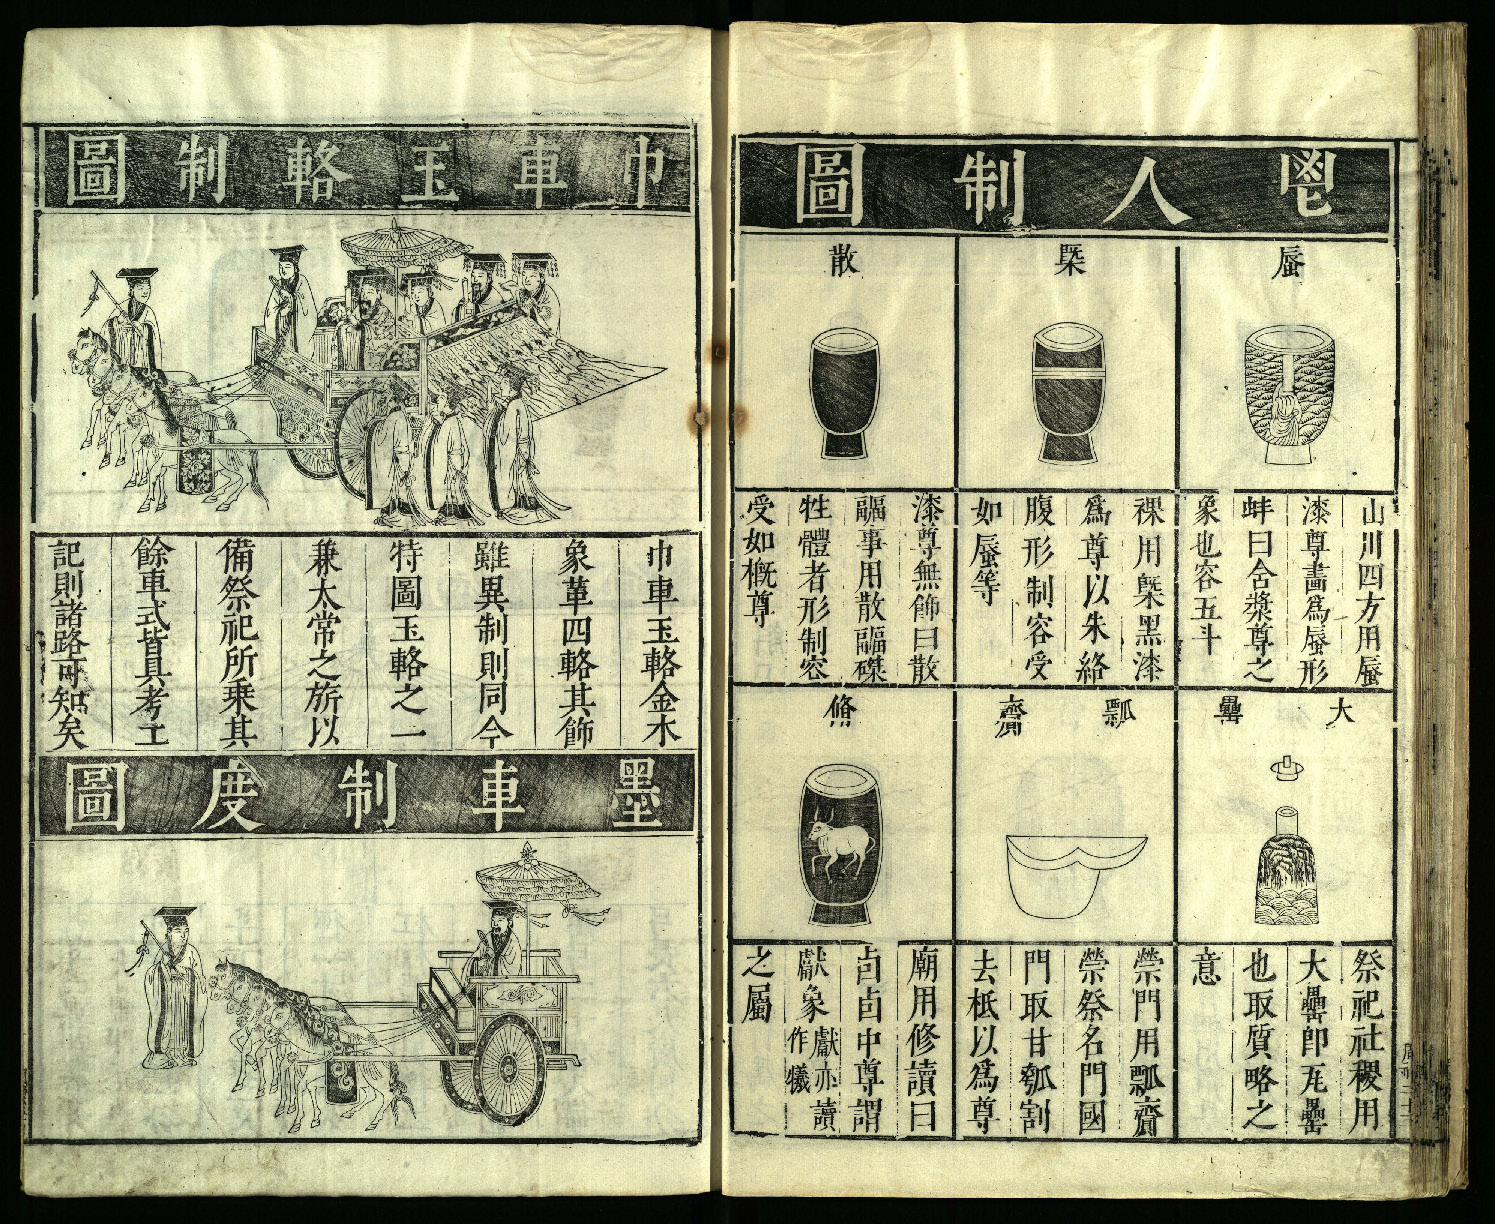 鬯人制圖
蜃
山川四方用蜃
漆尊畫爲蜃形
蚌曰含漿尊之
象也容五斗
槩
祼用槩黑漆
爲尊以朱絡
腹形制容受
如蜃等
散
漆尊無飾曰散
疈事用散疈磔
牲體者形制容
受如概尊
大罍
祭祀社稷用
大罍卽瓦罍
也取質略之
意
瓢齎
禜門用瓢齎
禜祭名門國
門取甘瓠割
去柢以爲尊
脩
廟用修讀曰
卣卣中尊謂
獻象獻亦讀作犧
之屬
巾車玉輅制圖
巾車玉輅金木
象革四輅其飾
雖異制則同今
特圖玉輅之一
兼大常之旂以
備祭祀所乘其
餘車式皆具考工
記則諸路可知矣
墨車制度圖